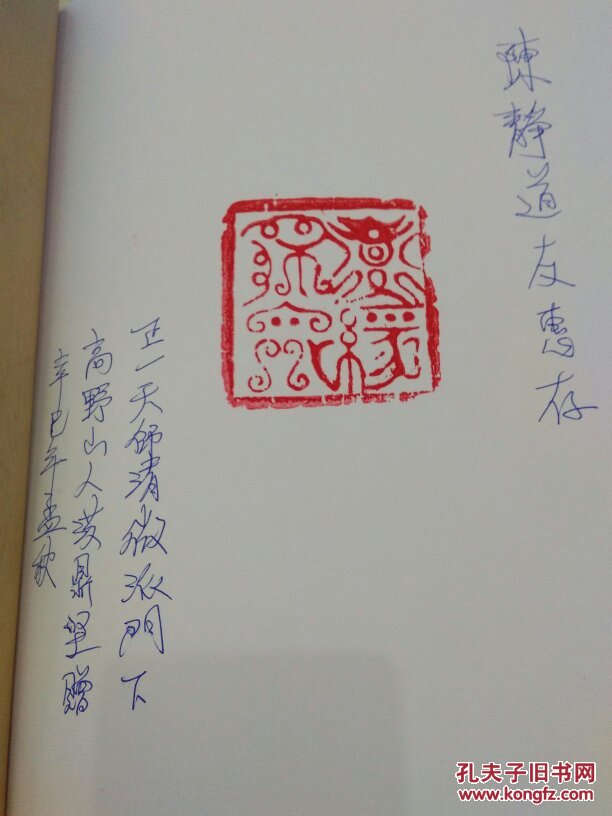 陳静道友惠存
正一天師清微派門下
高野山人黄鼎堅贈
辛巳年孟秋
孔夫子旧书网
www.kongfz.com